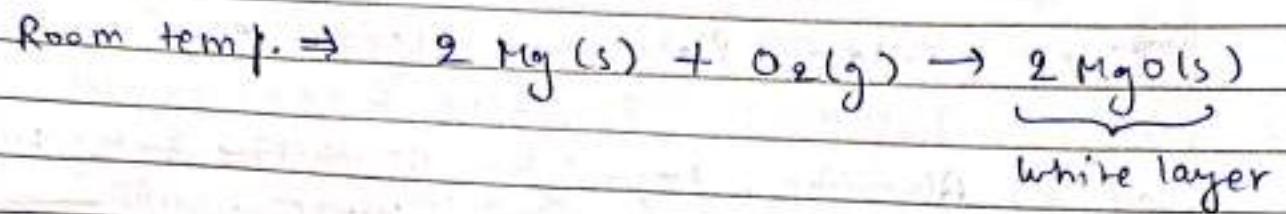 Room temp. ⇒ 2 Mg(s) + O₂(g) → 2 MgO(s)
white layer